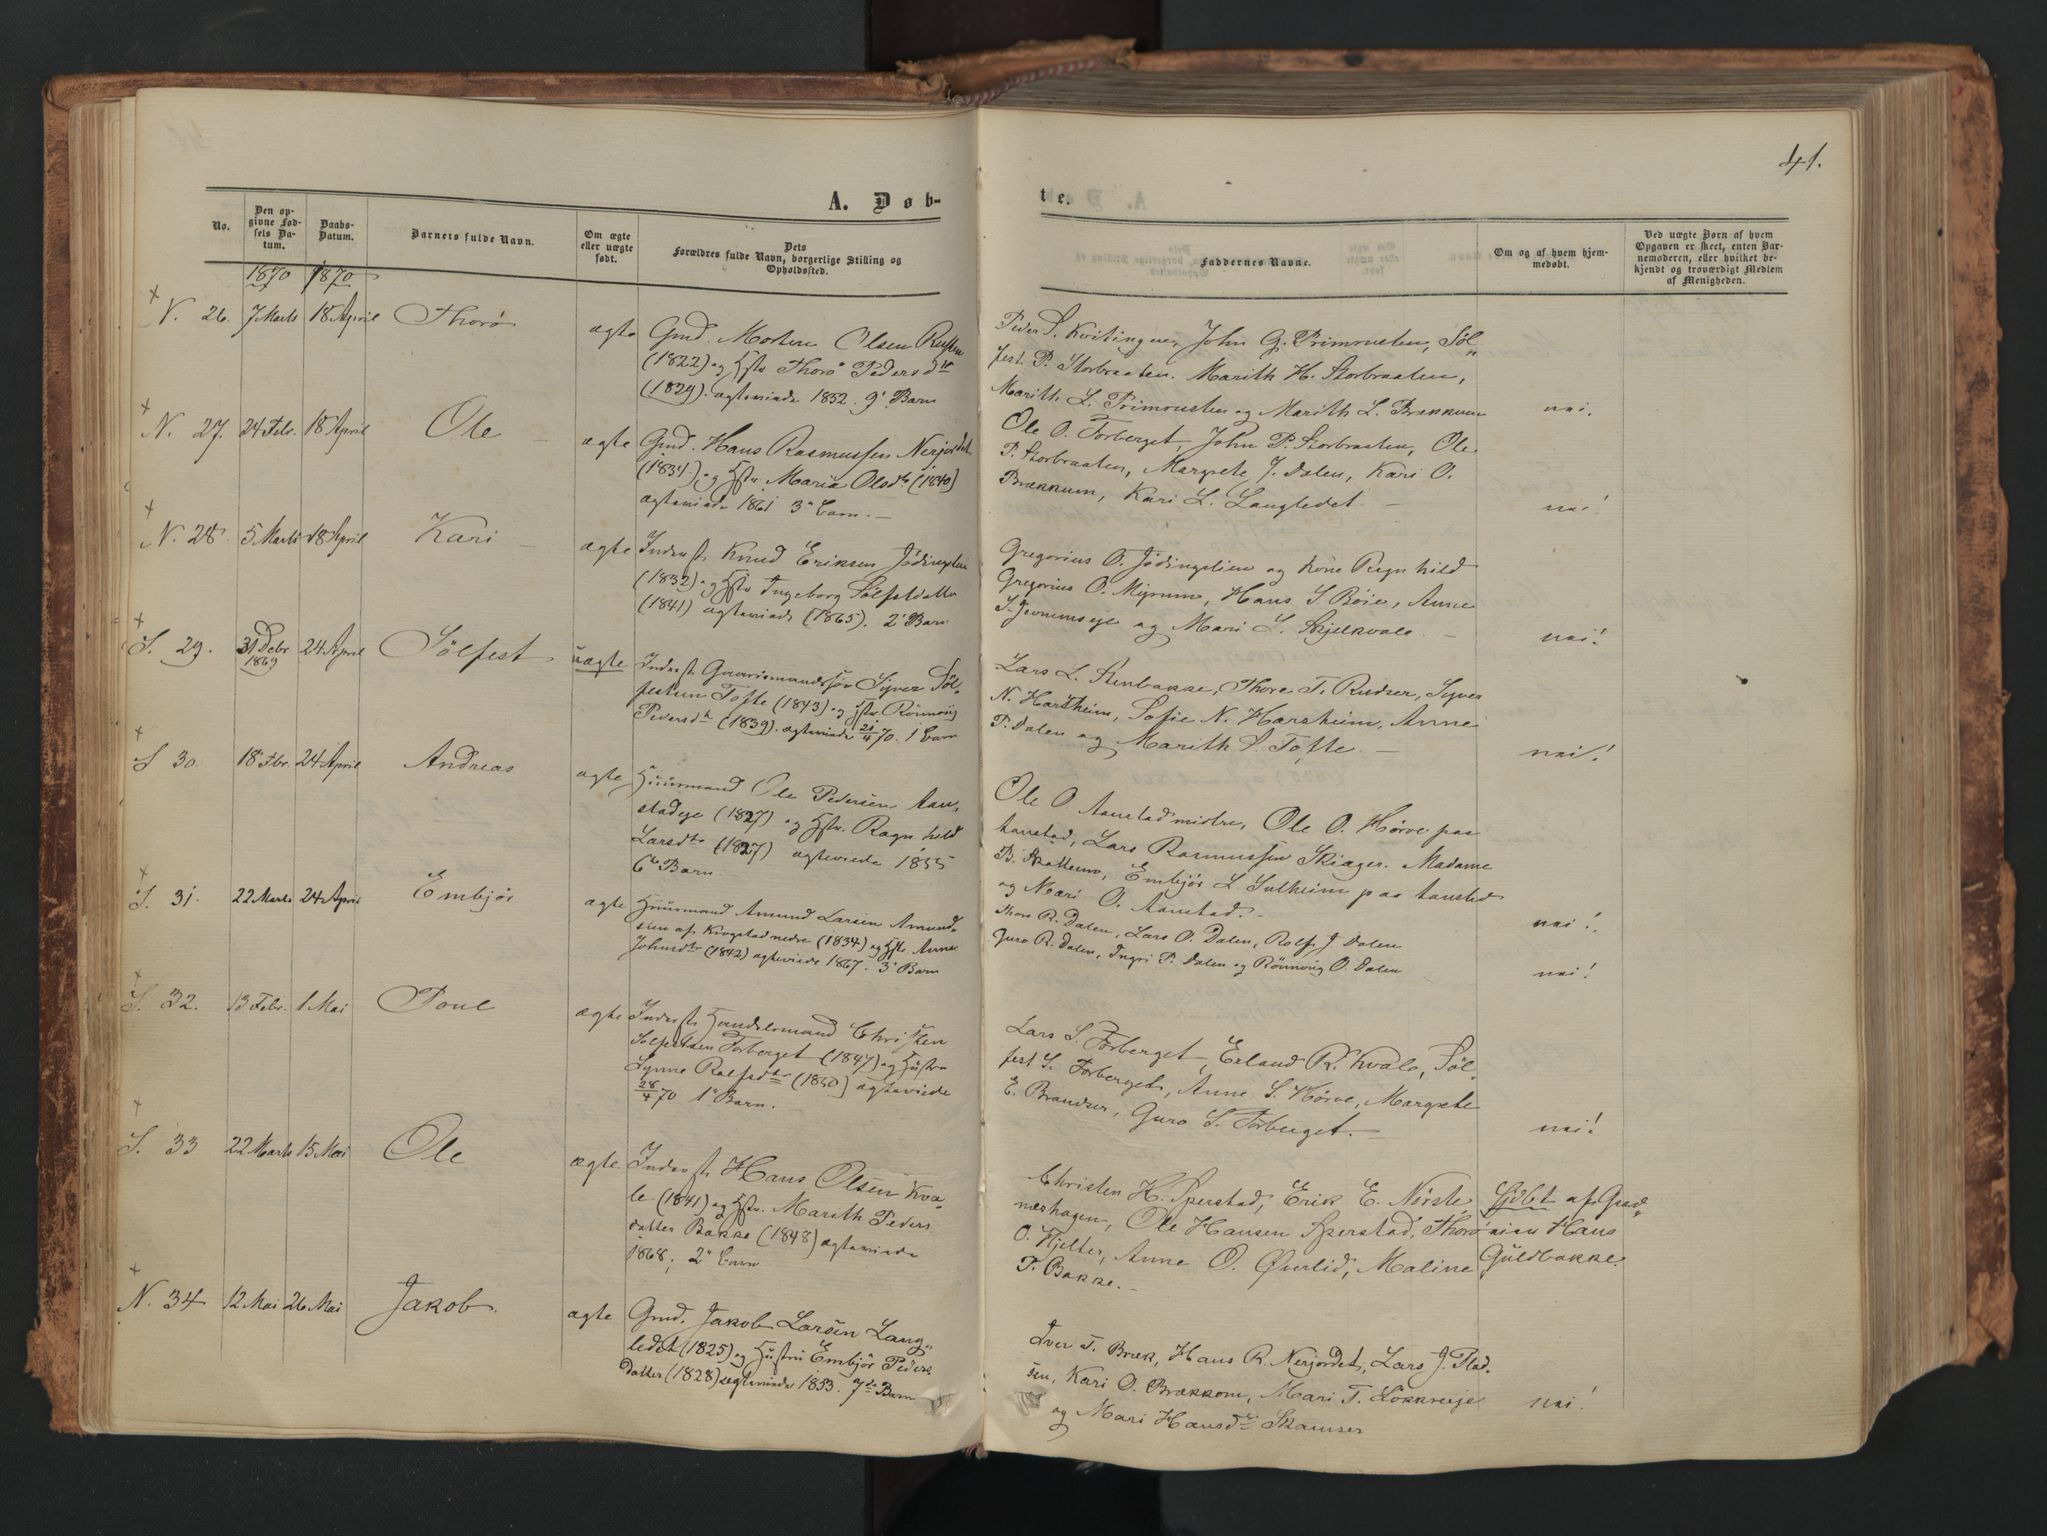 41.
A. Døb-
te.
No.
Den op-
givne Fød-
sels Da-
tum.
Daabs-
Datum.
Barnets fulde Navn.
Om ægte
eller uægte
født.
Dets
Forældres fulde Navn, borgerlige Stilling og
Opholdssted.
Faddernes Navne.
Om og af hvem hjem-
medøbt.
Ved uægte Børn af hvem
Opgaven er skeet, enten Bar-
nemoderen, eller hvilket be-
kjendt og troværdigt Medlem
af Menigheden.
1870 1870
N. 26. 7 Marts 18 April Thorø ægte
Gmd. Morten Olsen Rusten
(1822) og Hstr Thorø Pedersdtr
(1829). ægteviede 1852. 9' Barn
Peder S. Kvitingen, John G. Primousten, Søl-
fest P. Storbraaten. Marith H. Storbraaten,
Marith L. Primousten og Marith L. Brækkum
nei.
N. 27. 24 Febr. 18 April Ole ægte
Gmd. Hans Rasmussen Nerjordet
(1834) og Hstr. Maria Olsdtr (1840)
ægteviede 1861 3' Barn. –
Ole O. Forberget, John P. Storbraaten, Ole
P. Storbraaten, Margrete J. Dalen, Kari O.
Brækkum, Kari L. Langledet. –
nei!
N. 28. 5 Marts 18 April Kari ægte
Inderst Knud Eriksen Jødingslien
(1832) og Hstr Ingeborg Sølfestdatter
(1841) ægteviede (1865). 2' Barn
Gregorius O. Jødingslien og Kone Ragnhild
Gregorius O. Myrum, Hans S. Bøie, Anne
og Mari S. Skjelkvale. –
nei!
S. 29. 31 Debr 1869 24 April Sølfest uægte
Inderst Gaardmandssøn Syver Søl-
festsen Tofte (1843) og Hstr Rønnoug
Pedersdtr (1839). ægteviede 21/4 70. 1' Barn
Lars L. Stenbakke, Thore T. Rudser, Syver
N. Harsheim, Sofie N. Harsheim, Anne
P. Dalen og Marith S. Tofte. –
nei!
S 30. 18 Fbr. 24 April Andreas ægte
Huusmand Ole Pedersen Aan-
stadeje (1827) og Hstr. Ragnhild
Larsdtr (1827) ægteviede 1855
6te Barn
Ole O. Aanstad midtre, Ole O. Hørve paa
Aanstad, Lars Rasmussen Skiager. Madame
B. Skattebo, Embjør L. Sulheim paa Aanstad
og Mari O. Aanstad. –
nei!
S. 31. 22 Marts 24 April Embjør ægte
Huusmand Amund Larsen Amund-
sien af Krogstad nedre (1834) og Hstr Anne
Johnsdtr (1842) ægteviede 1867. 3' Barn
Thore R. Dalen, Lars O. Dalen, Rolf J. Dalen
Guro R. Dalen, Ingri P. Dalen og Rønnoug O. Dalen
nei!
S. 32. 13 Febr. 1 Mai Poul ægte
Inderst Handelsmand Christen
Sølfestsen Forberget (1847) og Hustru
Synne Rolfsdtr (1850) ægteviede
28/4 70 1' Barn.
Lars S. Forberget, Erland R. Kvale, Søl-
fest S. Forberget, Anne S. Hørve, Margrete
E. Brandser, Guro S. Forberget. –
nei!
S. 33 22 Marts 15 Mai Ole ægte
Inderst Hans Olsen Kva-
le (1841) og Hstr. Marith Peders
datter Bakke (1848) ægteviede
1868; 2' Barn
Christen H. Sperstad, Erik E. Nørste
næshagen, Ole Hansen Sperstad, Thorø
O. Hjelter, Anne O. Øverlid, Maline
P. Bakke. –
Hjdbt af Grad-
Hans
Guldbakke.
N. 34 12 Mai 26 Mai Jakob. ægte
Gmd. Jakob Larsen Lang-
ledet (1825) og Hustru Embjør Peders
datter (1828) ægteviede 1853. 7de Barn
Iver T. Bræk, Hans R. Nerjordet, Lars J. Flad-
sen, Kari O. Brækkom, Mari T. Løkkreeje
og Mari Hansdtr Skamser
nei!